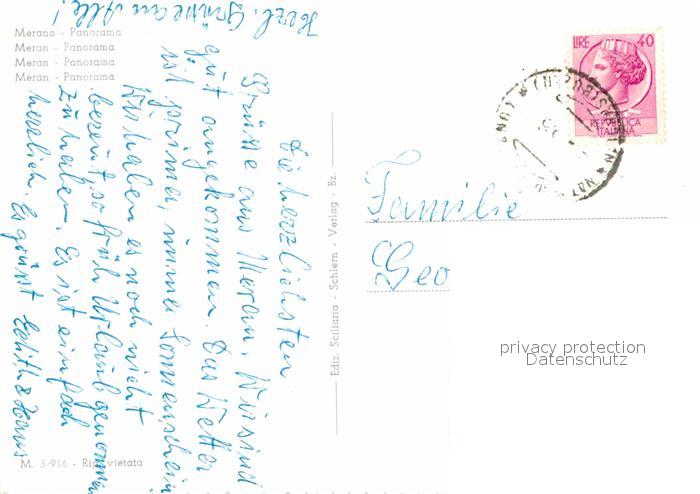 Merano - Panorama
Meran - Panorama
Meran - Panorama
Meran - Panorama
Die herzlichsten
Grüsse aus Meran. Wir sind
gut angekommen. Das Wetter
ist prima, immer Sonnenschein
Wir haben es noch nicht
bereut so früh Urlaub genommen
zu haben. Es ist einfach
herrlich. Es grüsst Edith & Hans
Herzl. Grüsse an Alle!
Ediz. Sciliaria - Schlern - Verlag - Bz.
LIRE 40
REPUBBLICA
ITALIANA
Familie
Geo
privacy protection
Datenschutz
M. 3/916 - Rip. vietata